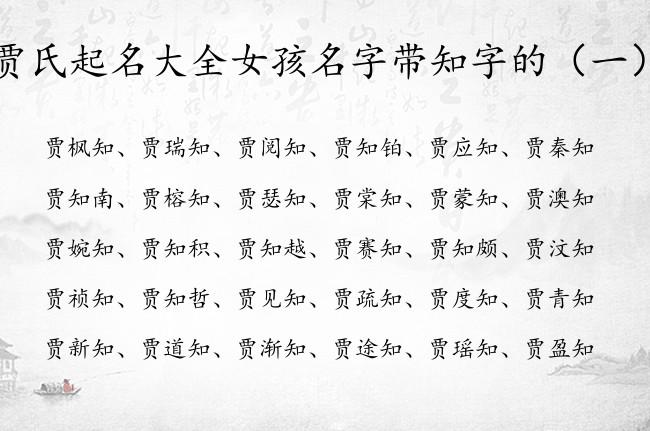 贾氏起名大全女孩名字带知字的（一）
贾枫知、贾瑞知、贾阅知、贾知铂、贾应知、贾秦知
贾知南、贾榕知、贾瑟知、贾棠知、贾蒙知、贾澳知
贾婉知、贾知积、贾知越、贾赛知、贾知颇、贾汶知
贾祯知、贾知哲、贾见知、贾疏知、贾度知、贾青知
贾新知、贾道知、贾渐知、贾途知、贾瑶知、贾盈知